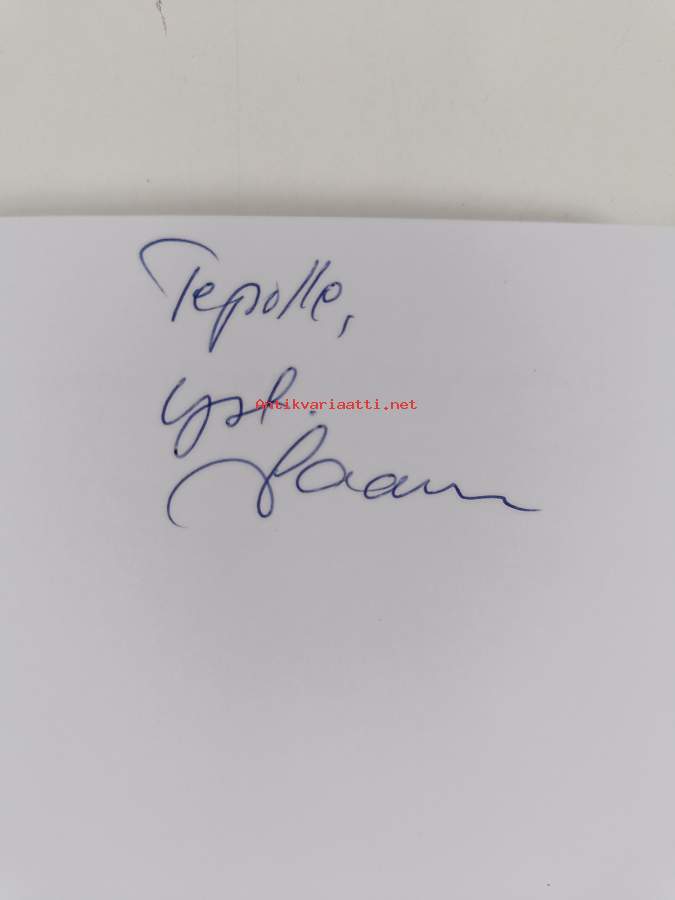 Tepolle,
yst.
Antikvariaatti.net